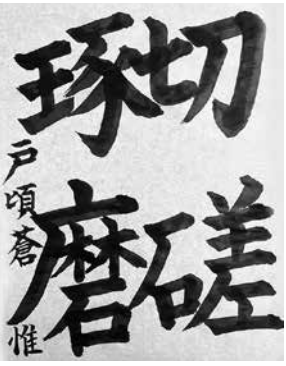 切磋
琢磨
戸頃蒼惟